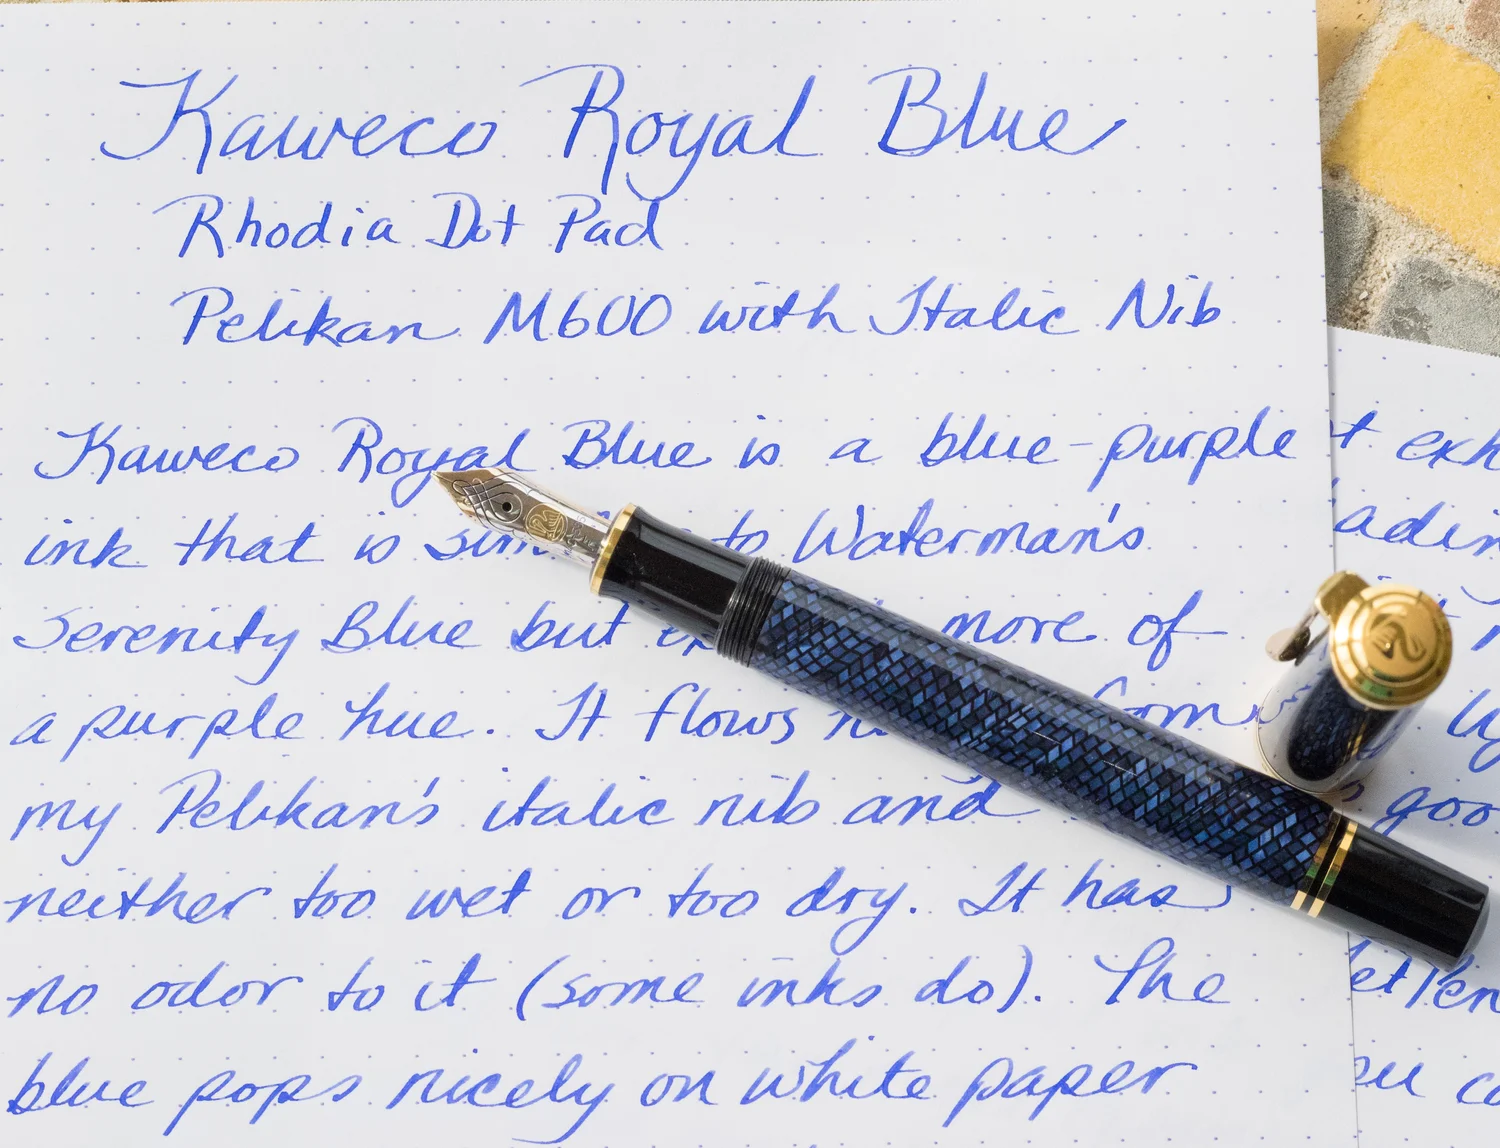 Kaweco Royal Blue
Rhodia Dot Pad
Pelikan M600 with Italic Nib
Kaweco Royal Blue is a blue-purple
ink that is to Waterman's
Serenity Blue but more of
a purple hue. It flows
my Pelikan's italic nib and
neither too wet or too dry. It has
no odor to it (some inks do). The
blue pops nicely on white paper